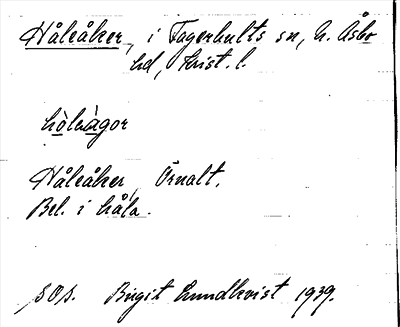 Håleåker, i Fagerhults sn, N. Åsbo
hd, Krist. l.
hòleàgor
Håleåker, Örnalt.
Bel. i håla.
SOs. Birgit Lundkvist 1939.